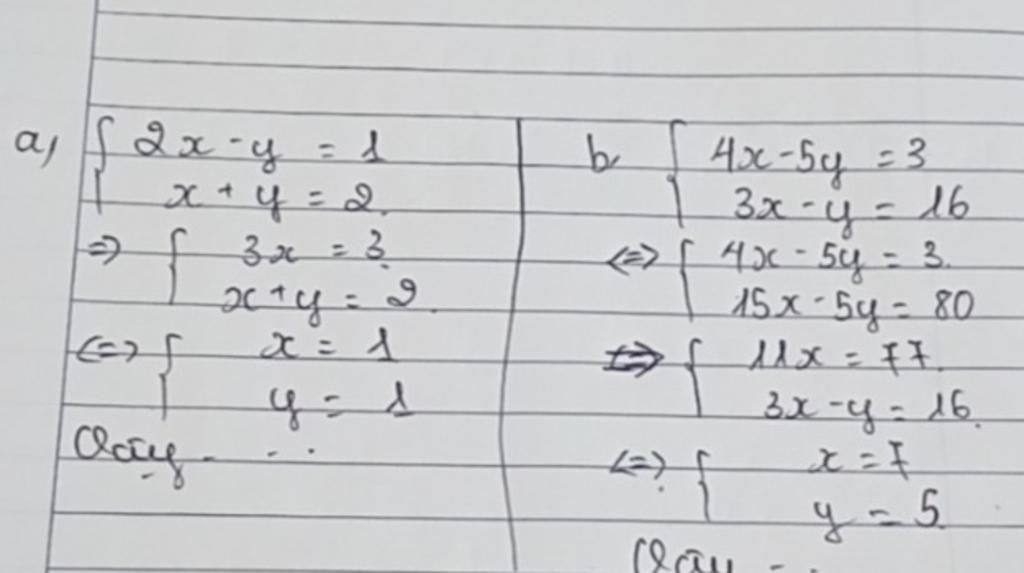 a, { 2x - y = 1
x + y = 2.
=> { 3x = 3
x + y = 2.
<=> { x = 1
y = 1
Vậy - - .
b, { 4x - 5y = 3
3x - y = 16
<=> { 4x - 5y = 3.
15x - 5y = 80
=> { 11x = 77.
3x - y = 16.
<=> { x = 7
y = 5
Vậy - .